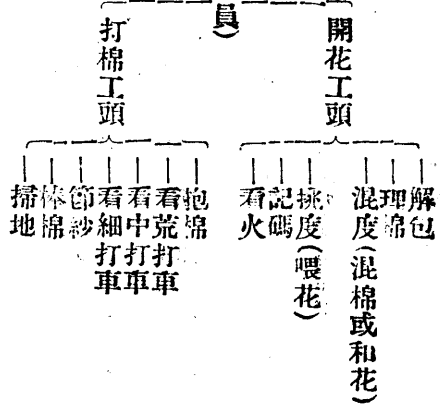 員）
開花工頭
解包
理棉
混度（混棉或和花）
挑度（喂花）
記碼
看火
打棉工頭
抱棉
看荒打車
看中打車
看細打車
節紗
棒棉
掃地